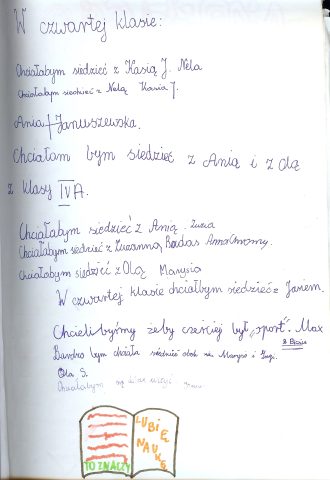 W czwartej klasie:
Chciałabym siedzieć z Kasią J. Nela
Chciałabym siedzieć z Nelą Kasia J.
Ania Januszewska.
Chciałam bym siedzieć z Anią i z Olą
z klasy IV A.
Chciałabym siedzieć z Anią. Zuzia
Chciałabym siedzieć z Zuzanną Badas
Chciałabym siedzieć z Olą Marysia
W czwartej klasie chciałbym siedzieć z Janem.
Chcielibyśmy żeby częściej był „sport". Max
Bardzo bym chciała siedzieć obok Marysi i Zuzi.
Ola S.
Chciałabym się
TO ZNACZY
LUBIĘ
NAUKĘ